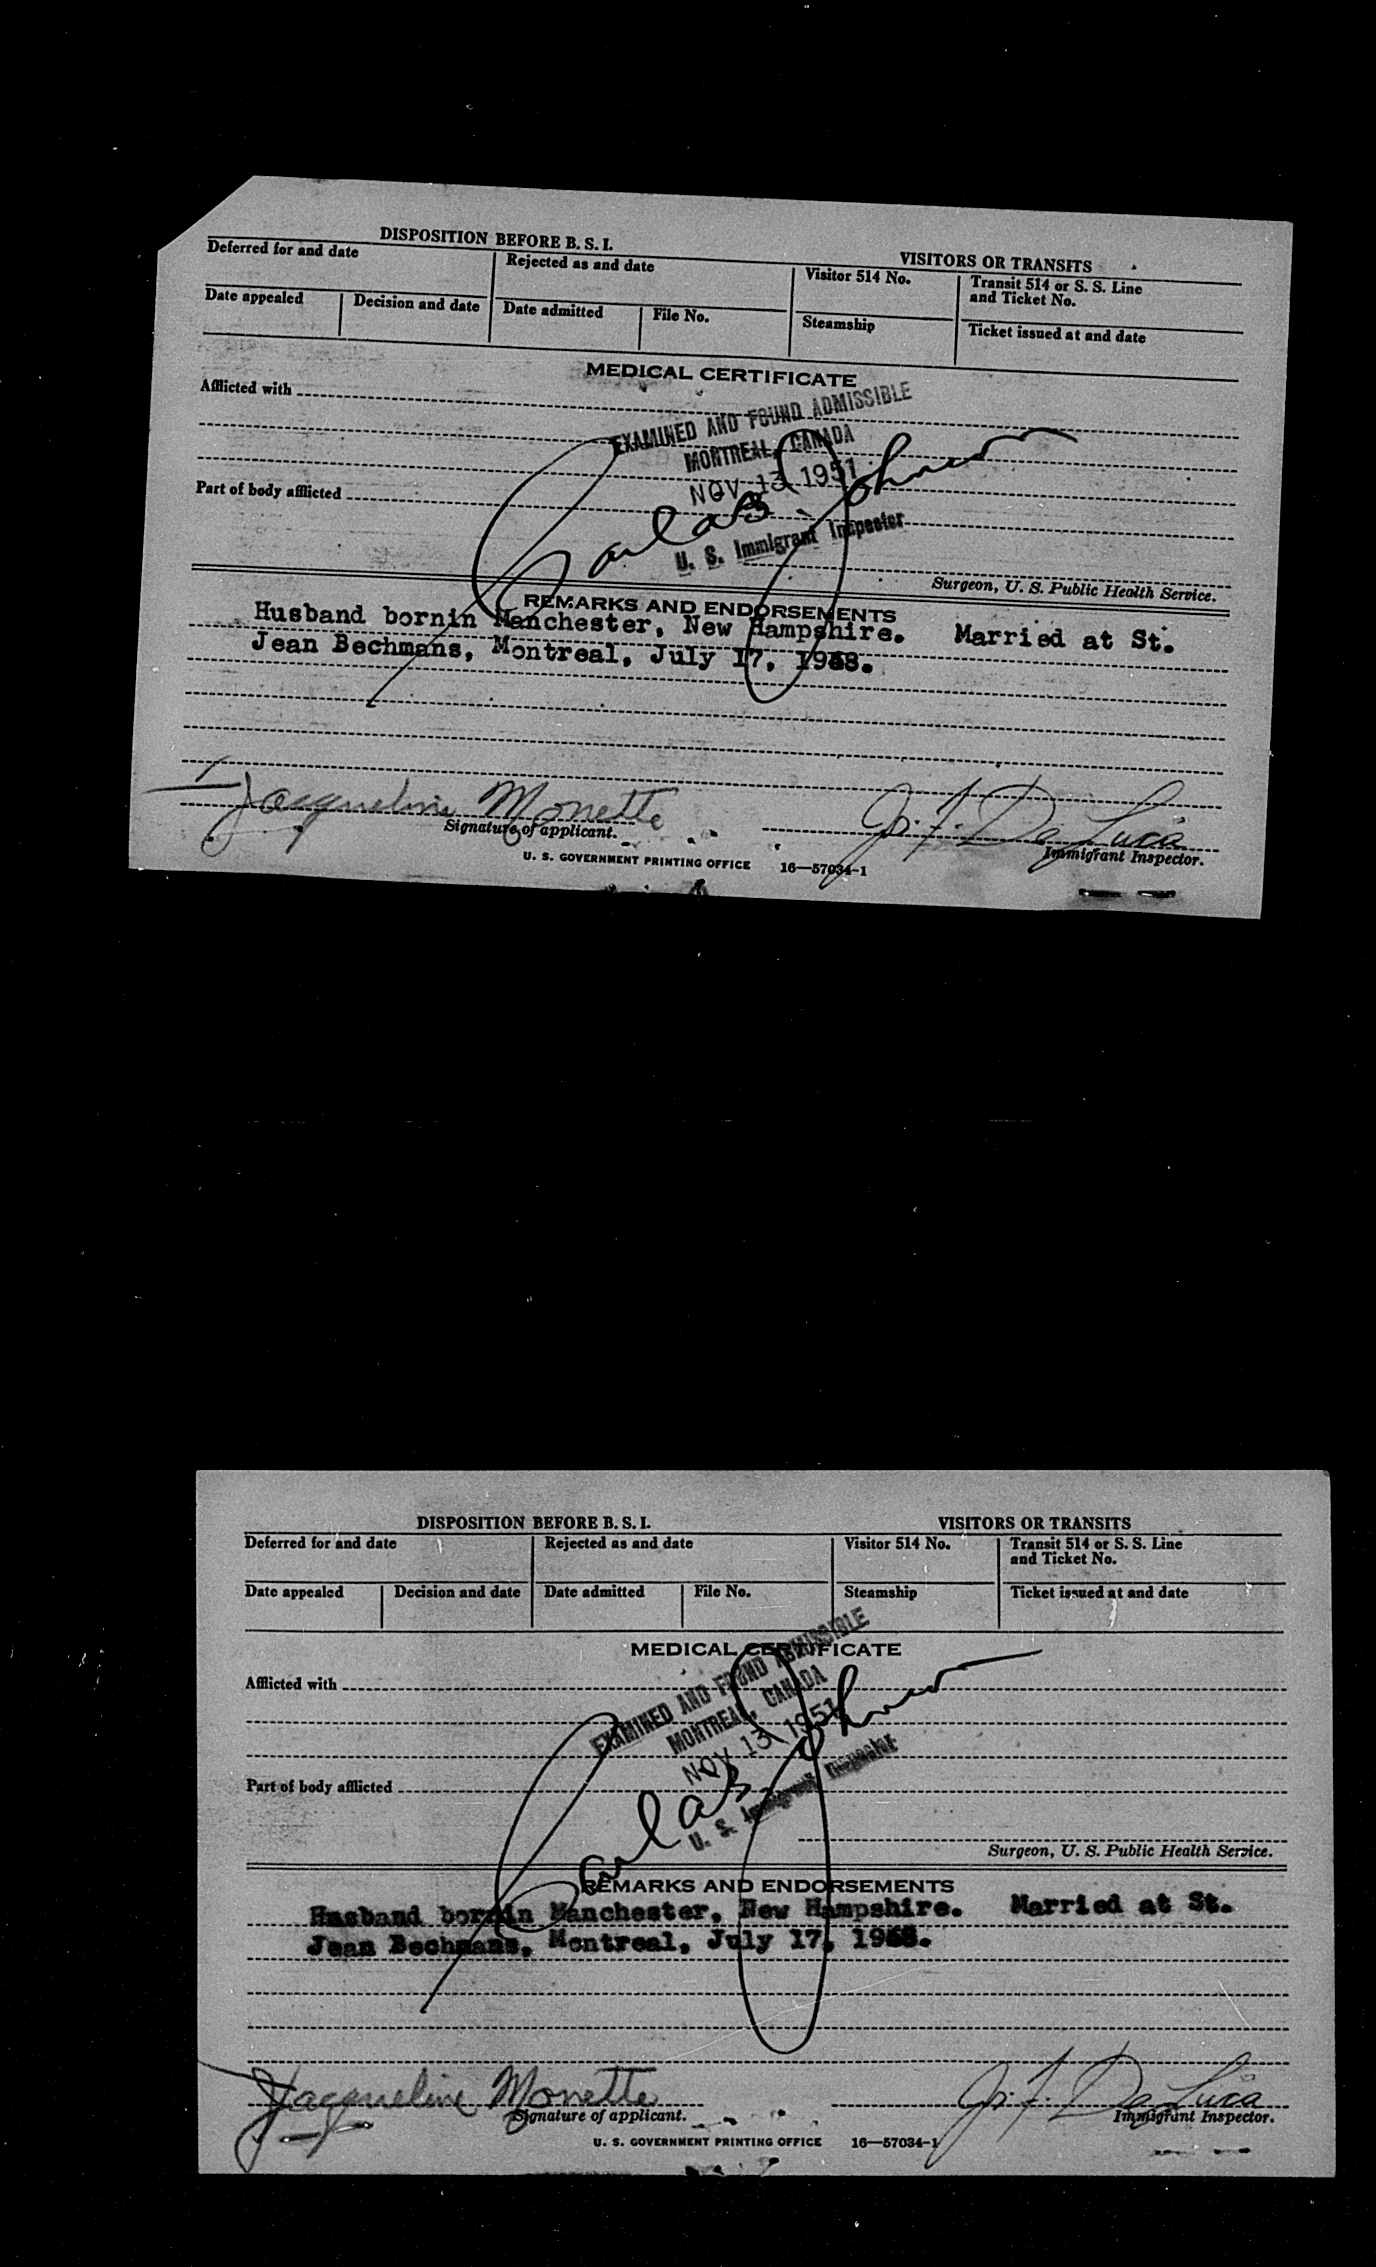 DISPOSITION BEFORE B. S. I.
VISITORS OR TRANSITS
Deferred for and date
Rejected as and date
Visitor 514 No.
Transit 514 or S. S. Line
and Ticket No.
Date appealed
Decision and date
Date admitted
File No.
Steamship
Ticket issued at and date
MEDICAL CERTIFICATE
Afflicted with
EXAMINED AND FOUND ADMISSIBLE
MONTREAL, CANADA
NOV 13 1951
Johnson
U. S. Immigrant Inspector
Part of body afflicted
Surgeon, U. S. Public Health Service.
REMARKS AND ENDORSEMENTS
Husband bornin Manchester, New Hampshire. Married at St.
Jean Bechmans, Montreal, July 17,
Jacqueline Monette
J. F. De Luca
Signature of applicant.
Immigrant Inspector.
U. S. GOVERNMENT PRINTING OFFICE 16—57034-1
DISPOSITION BEFORE B. S. I.
VISITORS OR TRANSITS
Deferred for and date
Rejected as and date
Visitor 514 No.
Transit 514 or S. S. Line
and Ticket No.
Date appealed
Decision and date
Date admitted
File No.
Steamship
Ticket issued at and date
MEDICAL CERTIFICATE
Afflicted with
EXAMINED AND FOUND ADMISSIBLE
MONTREAL, CANADA
NOV 13 1951
Johnson
U. S. Immigrant Inspector
Part of body afflicted
Surgeon, U. S. Public Health Service.
REMARKS AND ENDORSEMENTS
Husband bornin Manchester, New Hampshire. Married at St.
Jean Bechmans, Montreal, July 17,
Jacqueline Monette
J. F. De Luca
Signature of applicant.
Immigrant Inspector.
U. S. GOVERNMENT PRINTING OFFICE 16—57034-1